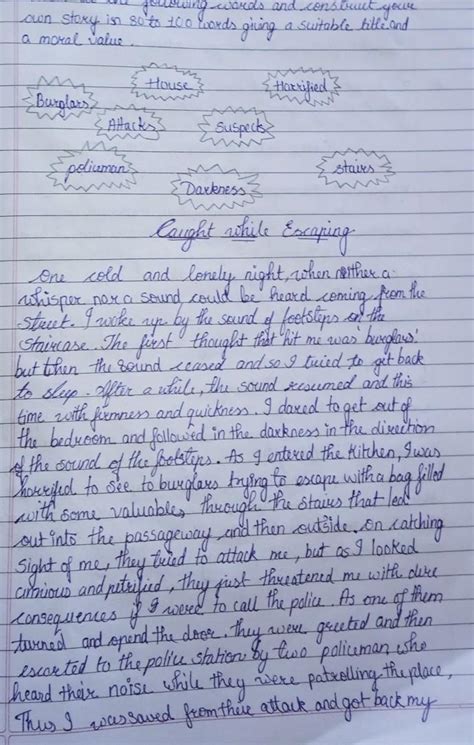 the following words and construct your
own story in 80 to 100 words giving a suitable title and
a moral value.
House
Horrified
Burglars
Attacks
Suspects
policuman
stairs
Darkness
Caught while Escaping
One cold and lonely night, when neither a
whisper nor a sound could be heard coming from the
street. I woke up by the sound of footsteps on the
staircase. The first thought that hit me was 'burglars'
but then the sound ceased and so I tried to get back
to sleep. After a while, the sound resumed and this
time with firmness and quickness. I dared to get out of
the bedroom and followed in the darkness in the direction
of the sound of the footsteps. As I entered the kitchen, I was
horrified to see to burglars trying to escape with a bag filled
with some valuables through the stairs that led
out into the passageway and then outside. On catching
sight of me, they tried to attack me, but as I looked
and petrified, they just threatened me with dire
consequences if I were to call the police. As one of them
turned and opend the door. they were greeted and then
escorted to the police station by two policuman who
heard their noise while they were patrolling the place,
Thus I was saved from there attack and got back my